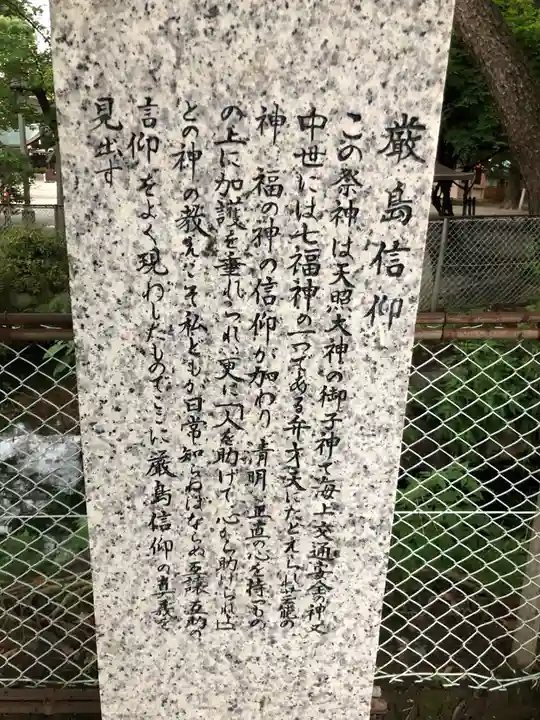 厳島信仰
この祭神は天照大神の御子神で海上交通安全の神又
中世には七福神の一つである弁才天にたとえられ芸能の
神 福の神の信仰が加わり清明 正直の心を持もの
の上に加護を垂れつれ更に「人を助けて心から助けられよ」
との神の教えこそ私どもが日常知らねばならぬ互譲互助の
信仰をよく現わしたものでここに厳島信仰の真義を
見出す